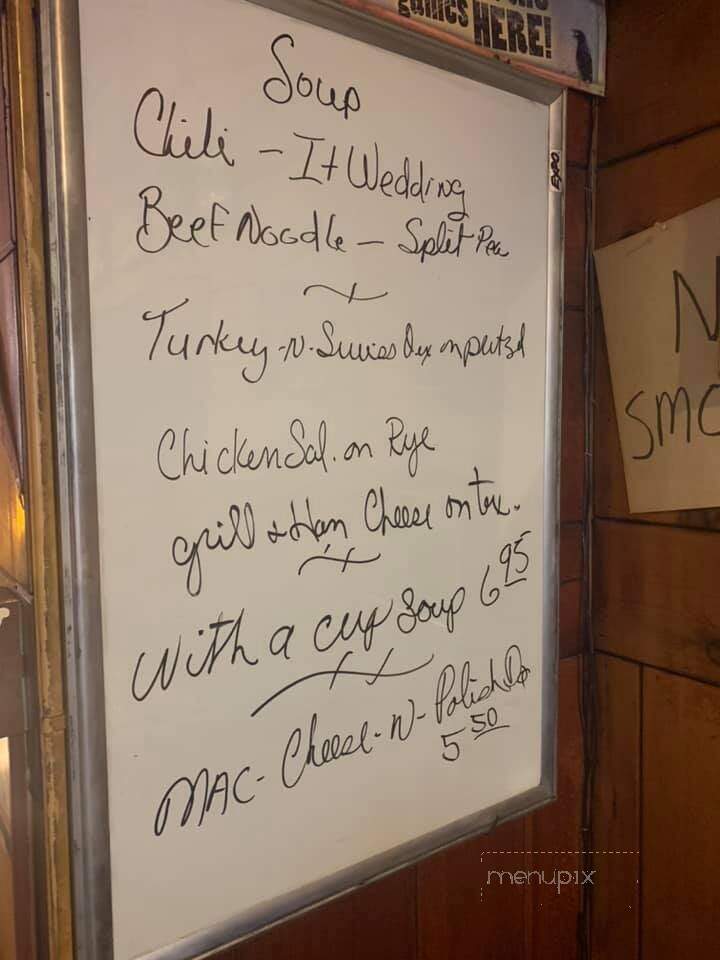 games HERE!
Soup
Chili - It Wedding
Beef Noodle - Split Pea
Turkey-N-Swiss on
Chicken Sal. on Rye
grill Ham Cheese on
With a cup Soup 6 95
MAC-Cheese-N-Polish
5 50
EXPO
N
SMO
menupix